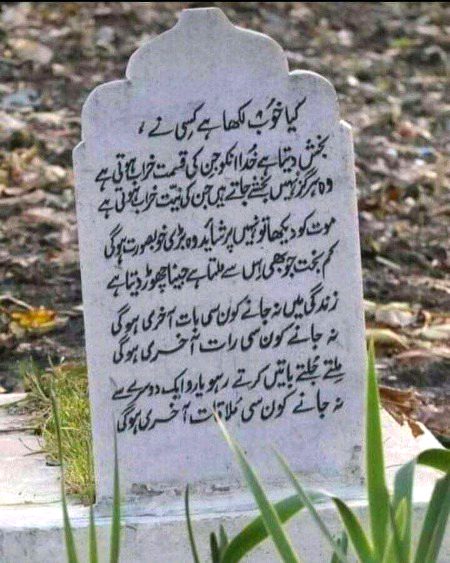 کیا خوب لکھا ہے کسی نے،
بخش دیتا ہے خُدا انکو جن کی قسمت خراب ہوتی ہے
وہ ہرگز نہیں بخشے جاتے ہیں جن کی نیت خراب ہوتی ہے
موت کو دیکھا تو نہیں پر شاید وہ بڑی خوبصورت ہوگی
کم بخت جو بھی اس سے ملتا ہے جینا چھوڑ دیتا ہے
زندگی میں نہ جانے کون سی بات آخری ہوگی
نہ جانے کون سی رات آخری ہوگی
ملتے جُلتے باتیں کرتے رہو یارو ایک دوسرے سے
نہ جانے کون سی مُلاقات آخری ہوگی